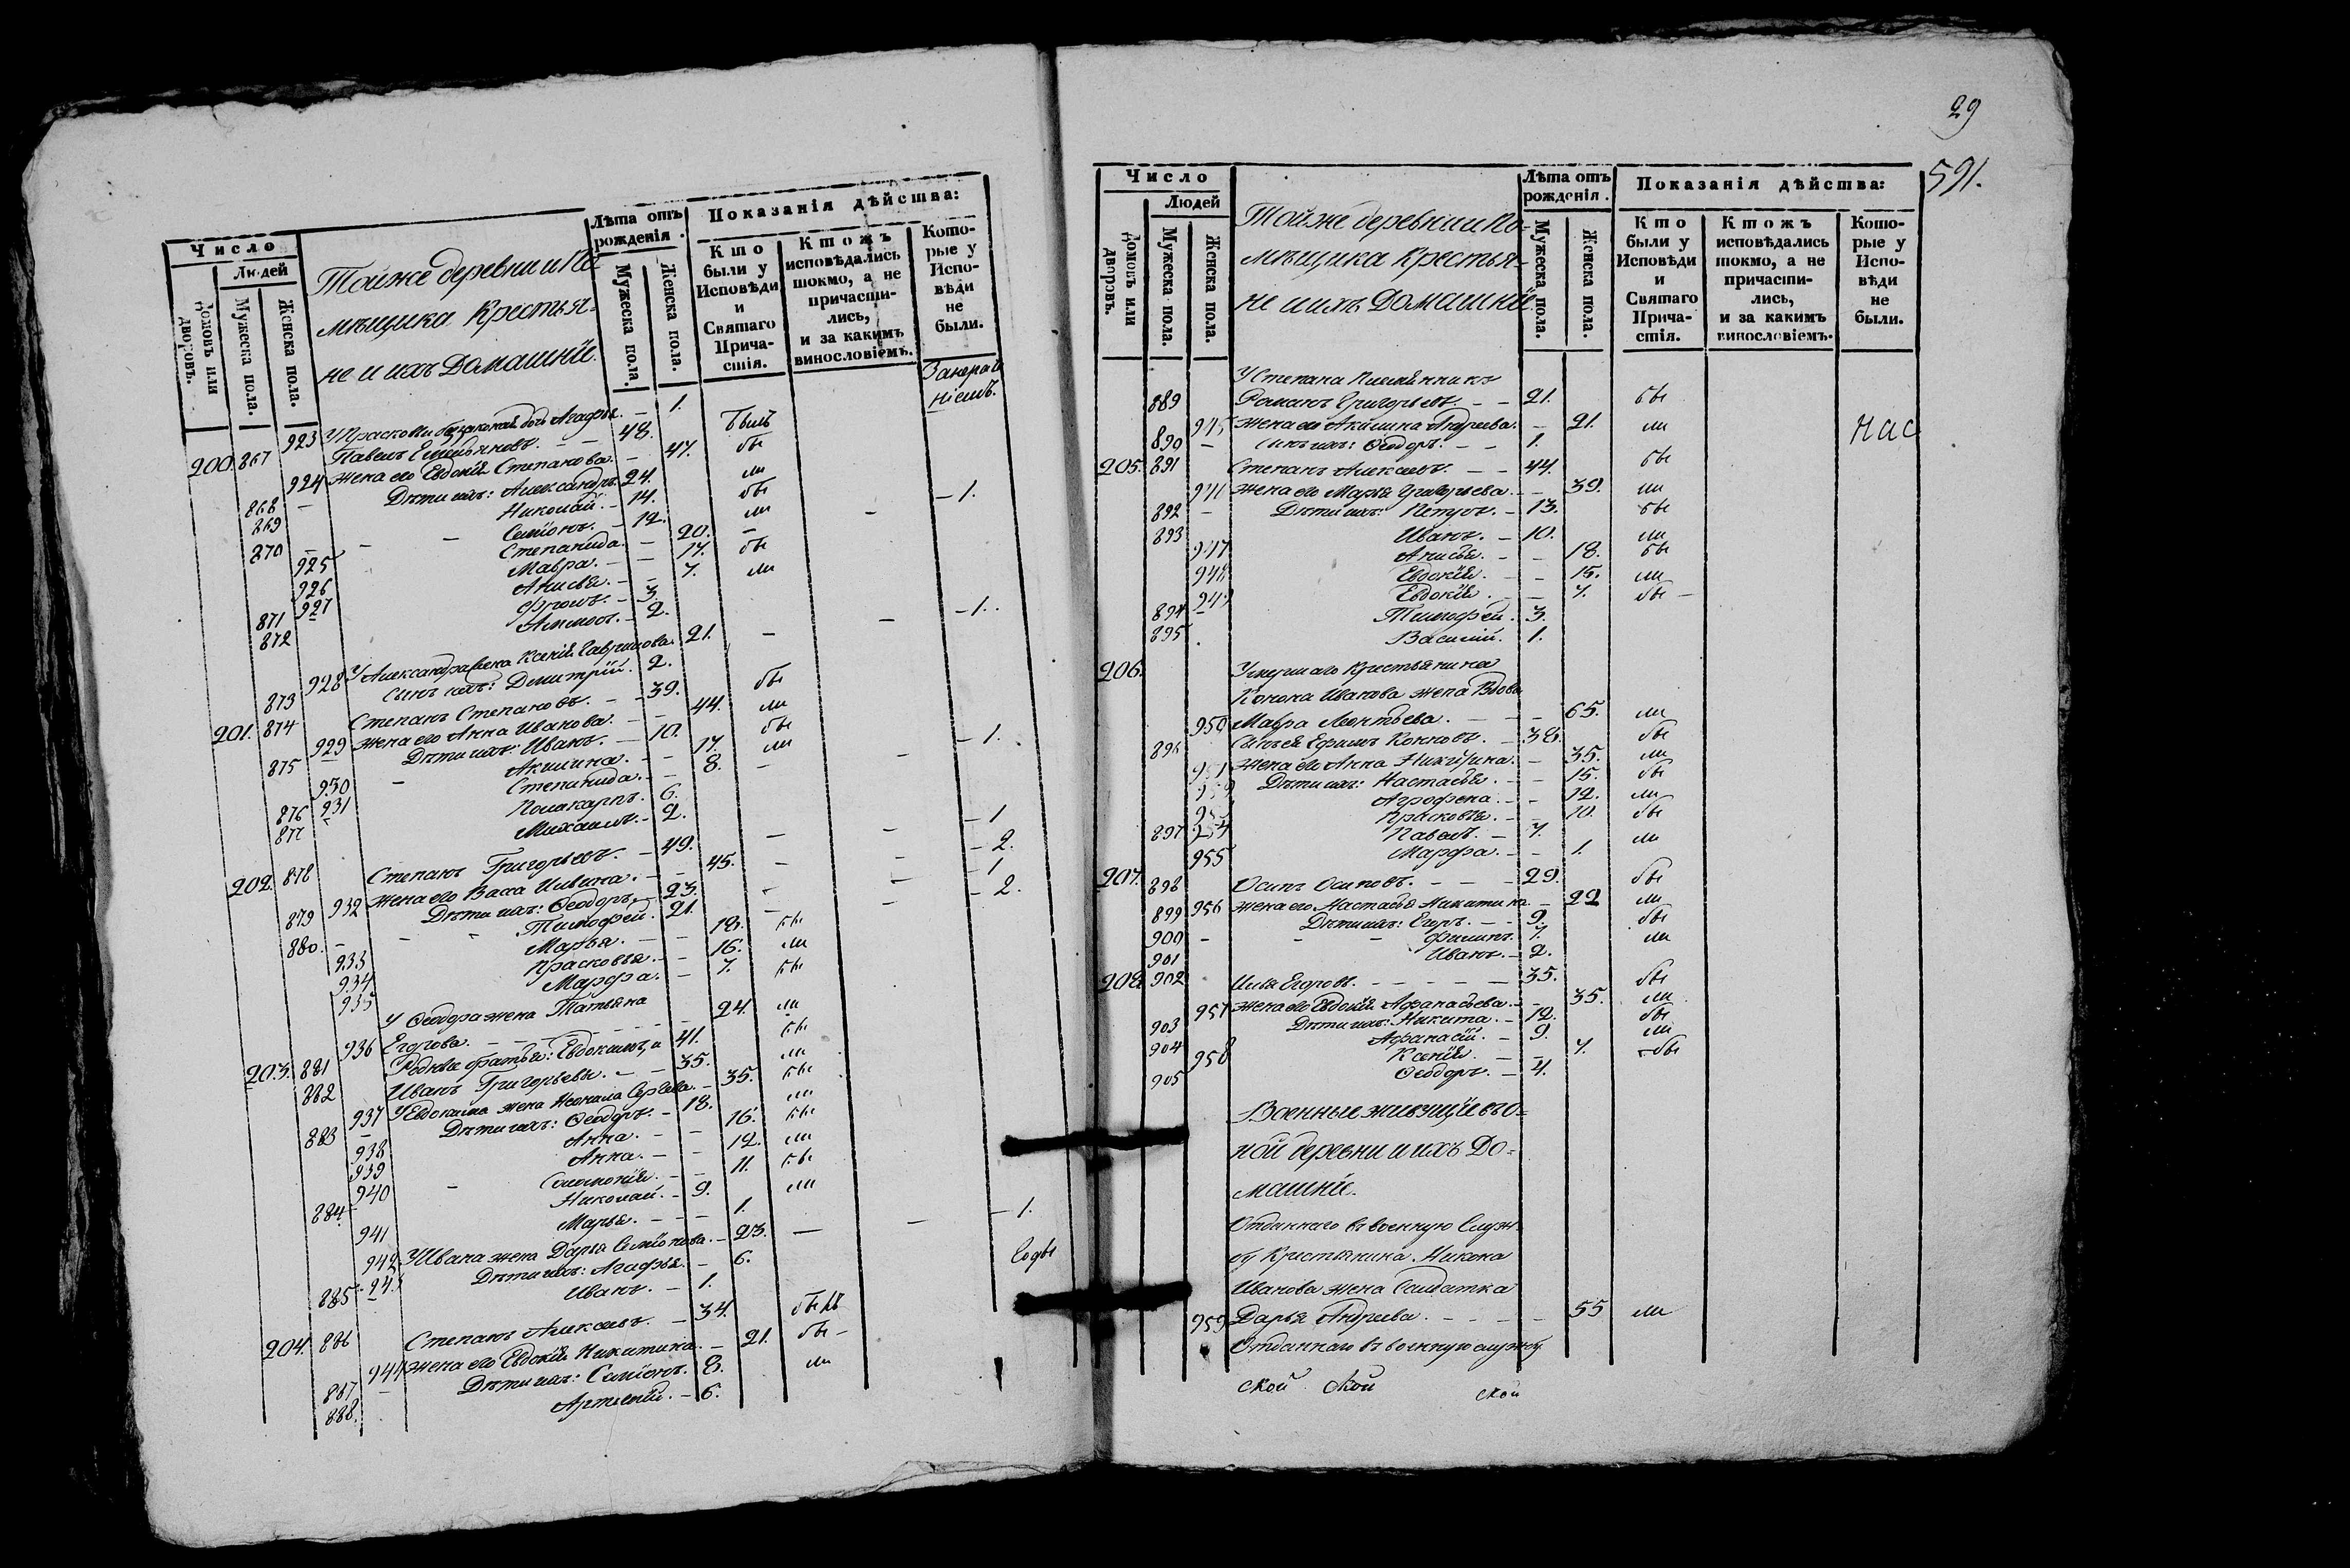 Число
Людей
Домовъ или дворовъ.
Мужеска пола.
Женска пола.
Тойже деревни и По-
мѣщика Крестья-
не и ихъ Домашнїе.
Лѣта отъ рожденія.
Мужеска пола.
Женска пола.
Показанія дѣйства:
Кто были у Исповѣди и Святаго Причастія.
Ктожъ исповѣдались токмо, а не причастились, и за какимъ винословіемъ.
Которые у Исповѣди не были.
923 У Прасковьи дочь Агафья. — 1.
200. 867 Павелъ Емельяновъ. — 48. были
924 Жена его Евдокїя Степанова. — 47. бы
868 — Дѣти ихъ: Александръ. 24. ли — 1.
869 Николай. — 14. бы
870 Семїонъ. — 12. ли
925 Степанида. — 20. —
926 Мавра. — 17. бы
927 Анисья. — 7. ли
871 Фролъ. — 3.
872 Аммосъ. — 2.
928 У Александра жена Ксенїя Гаврилова. 21. — — 1.
873 Сынъ ихъ: Димитрїй. 2.
201. 874 Степанъ Степановъ. — 39. бы
929 Жена его Анна Иванова. — 44. ли
875 Дѣти ихъ: Иванъ. — 10. бы
930 Акилина. — 17. ли — 1.
931 Степанида. — 8. —
876 Поликарпъ. 6.
877 Михаилъ. — 2.
202. 878 Степанъ Григорьевъ. — 49. — — 1
932 Жена его Васса Ильина. — 45. — — 2.
879 Дѣти ихъ: Ѳеодоръ. — 23. — — 1
880. Тимофей. 21. — — 2.
933 Марья. — 18. бы
934 Прасковья. — 16. ли
935 Марфа. — 7. бы
У Ѳеодора жена Татьяна
936 Егорова. — 24. ли
203. 881 Родные братья: Евдокимъ, и 41. бы
882 Иванъ Григорьевы. — 35. ли
937 У Евдокима жена Неонила Сергѣева. — 35. бы
883 Дѣти ихъ: Ѳеодоръ. — 18. ли
938 Анна. — 16. бы
939 Анна. — 12. ли
940 Соломонїя. — 11. бы
884 Николай. — 9. ли
941 Марья. — 1.
942 У Ивана жена Дарья Семїонова. — 23. — — 1.
943 Дѣти ихъ: Агафья. — 6.
885 Иванъ. — 1.
204. 886 Степанъ Алексѣевъ. — 34.
944 Жена его Евдокїя Никитина. — 21. бы
887 — Дѣти ихъ: Симїонъ. 8. ли
888. Артемїй. — 6.
29
591.
Число
Людей
Домовъ или дворовъ.
Мужеска пола.
Женска пола.
Тойже деревни и По-
мѣщика Крестья-
не и ихъ Домашнїе
Лѣта отъ рожденія.
Мужеска пола.
Женска пола.
Показанія дѣйства:
Кто были у Исповѣди и Святаго Причастія.
Ктожъ исповѣдались токмо, а не причастились, и за какимъ винословіемъ.
Которые у Исповѣди не были.
У Степана Племянникъ
889 Романъ Григорьевъ. — — 21. бы
945 Жена его Акилина Андреева. — 21. ли
890 — Сынъ ихъ: Ѳеодоръ. — 1.
нас
205. 891 Степанъ Алексѣевъ. — — 44. бы
Жена его Марья Григорьева. — 39. ли
892 — Дѣти ихъ: Петръ. — 13. бы
893 Иванъ. — 10. ли
947 Анисья. — 18. бы
948 Евдокїя. — 15. ли
949 Евдокїя. — 7. бы —
894 Тимофей. 3.
895 Василїй. 1.
206. Умершаго Крестьянина
Конона Иванова жена Вдова
950 Мавра Леонтьева. — 65. ли
896 Сынъ ея Ефимъ Кононовъ. — 38. бы
951 Жена его Анна Никитина. — 35. ли
Дѣти ихъ: Настасья. — 15. бы
Агрофена. — 12. ли
Прасковья. — 10. бы
897 954 Павелъ. — 7. ли
955 Марфа. — 1.
207. 898 Осипъ Осиповъ. — — 29. бы
956 Жена его Настасья Никитина — 29 ли
899 Дѣти ихъ: Егоръ. — 9. бы
900 — Филипъ. 7. ли
901 Иванъ. — 2.
208. 902 Илья Егоровъ. — — — 35. бы
957 Жена его Евдокїя Афанасьева. — 35. ли
903 Дѣти ихъ: Никита. — 12. бы
904 Афанасїй. — 9. ли
958 Ксенїя. — 7. бы
905 Ѳеодоръ. — 4.
Военные живущїе въ о-
ной деревни и ихъ До-
машнїе.
Отданнаго въ военную Служ-
бу Крестьянина Никона
Иванова жена Салдатка
959 Дарья Андреева. — — — 55 ли
Отданнаго въ военную службу
ской ской ской